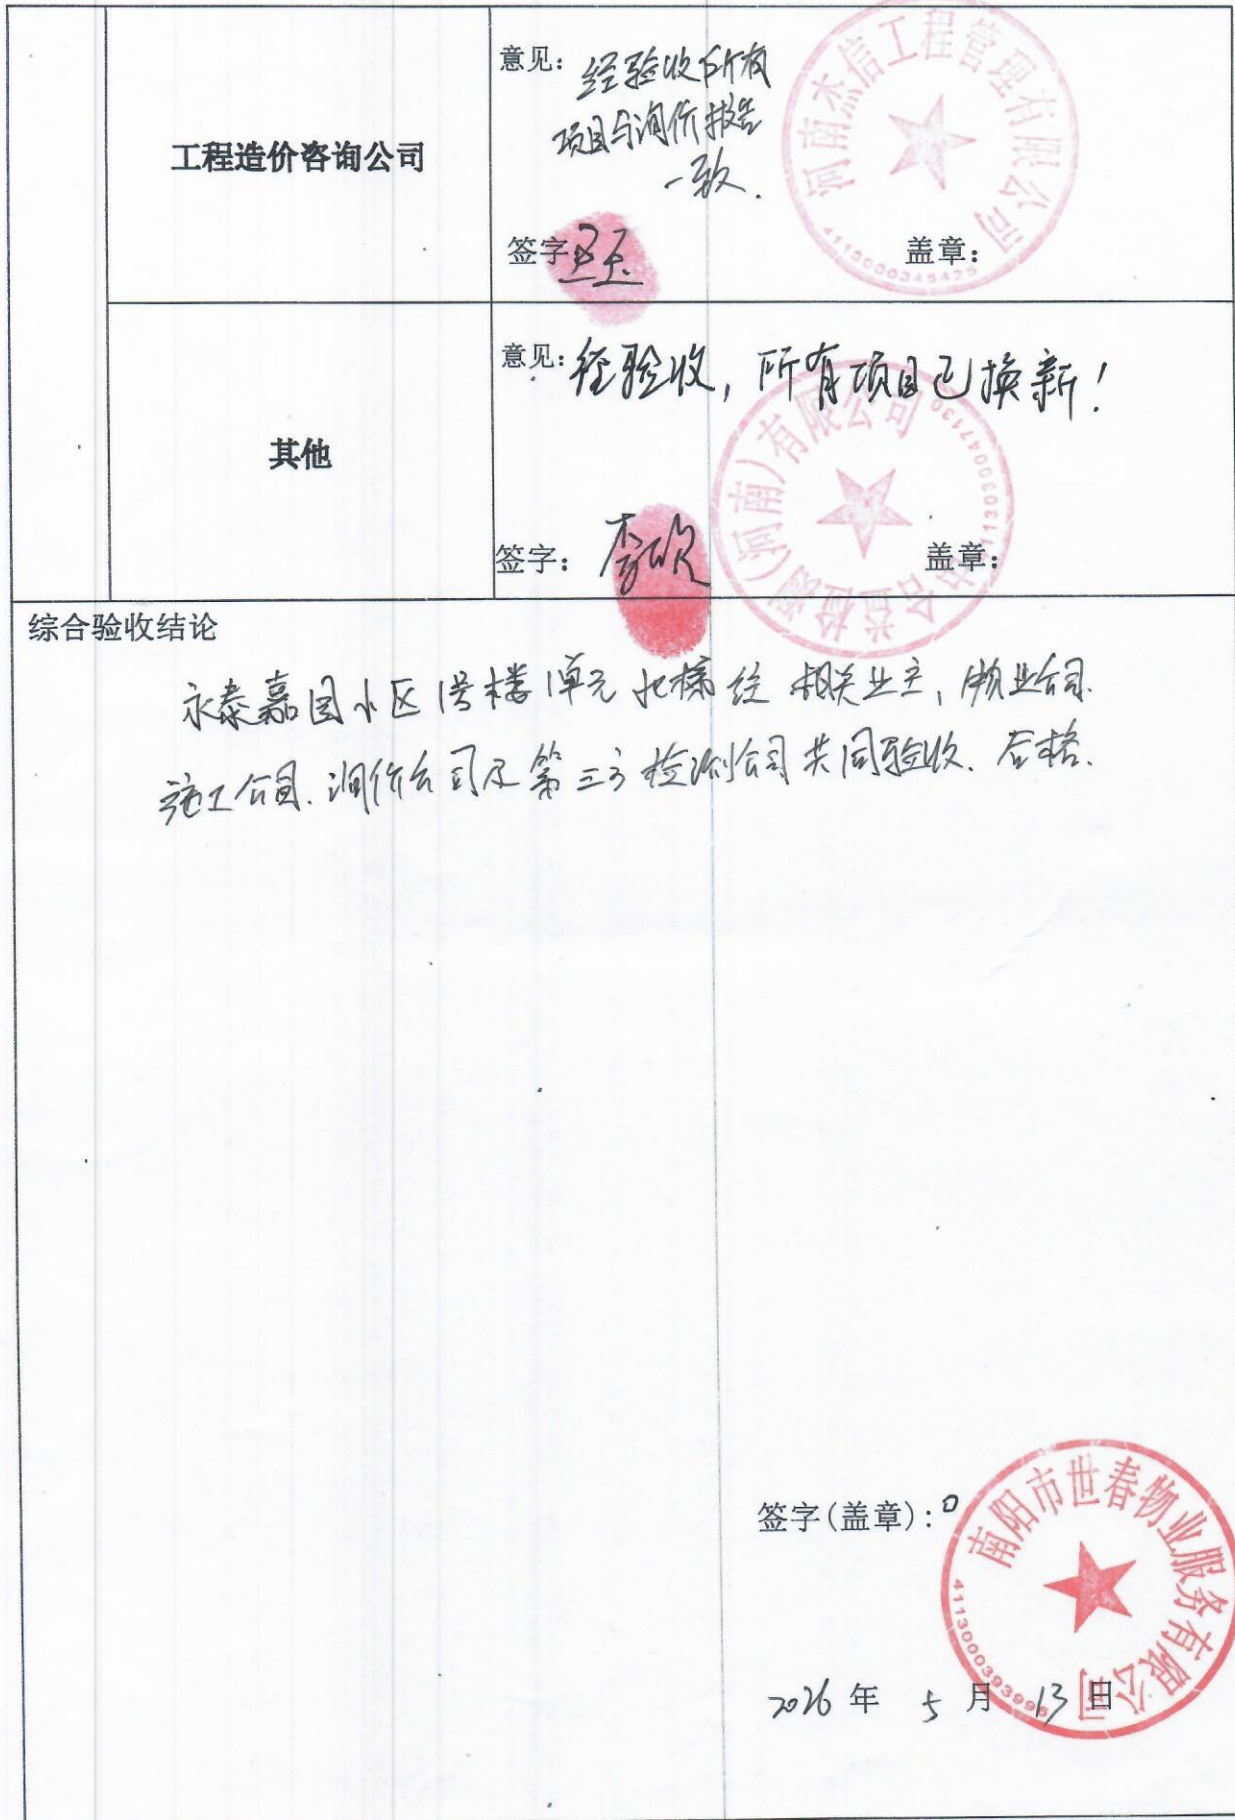 工程造价咨询公司
意见：经验收所有
项目与询价报告
一致.
签字
盖章：
河南杰信工程管理有限公司
4113000345425
其他
意见：经验收，所有项目已换新！
签字：李欣
盖章：
检测(河南)有限公司
综合验收结论
永泰嘉园小区1号楼1单元电梯经相关业主，物业公司.
施工公司.询价公司及第三方检测公司共同验收.合格.
签字(盖章)：
南阳市世春物业服务有限公司
4113000393996
2026年5月13日